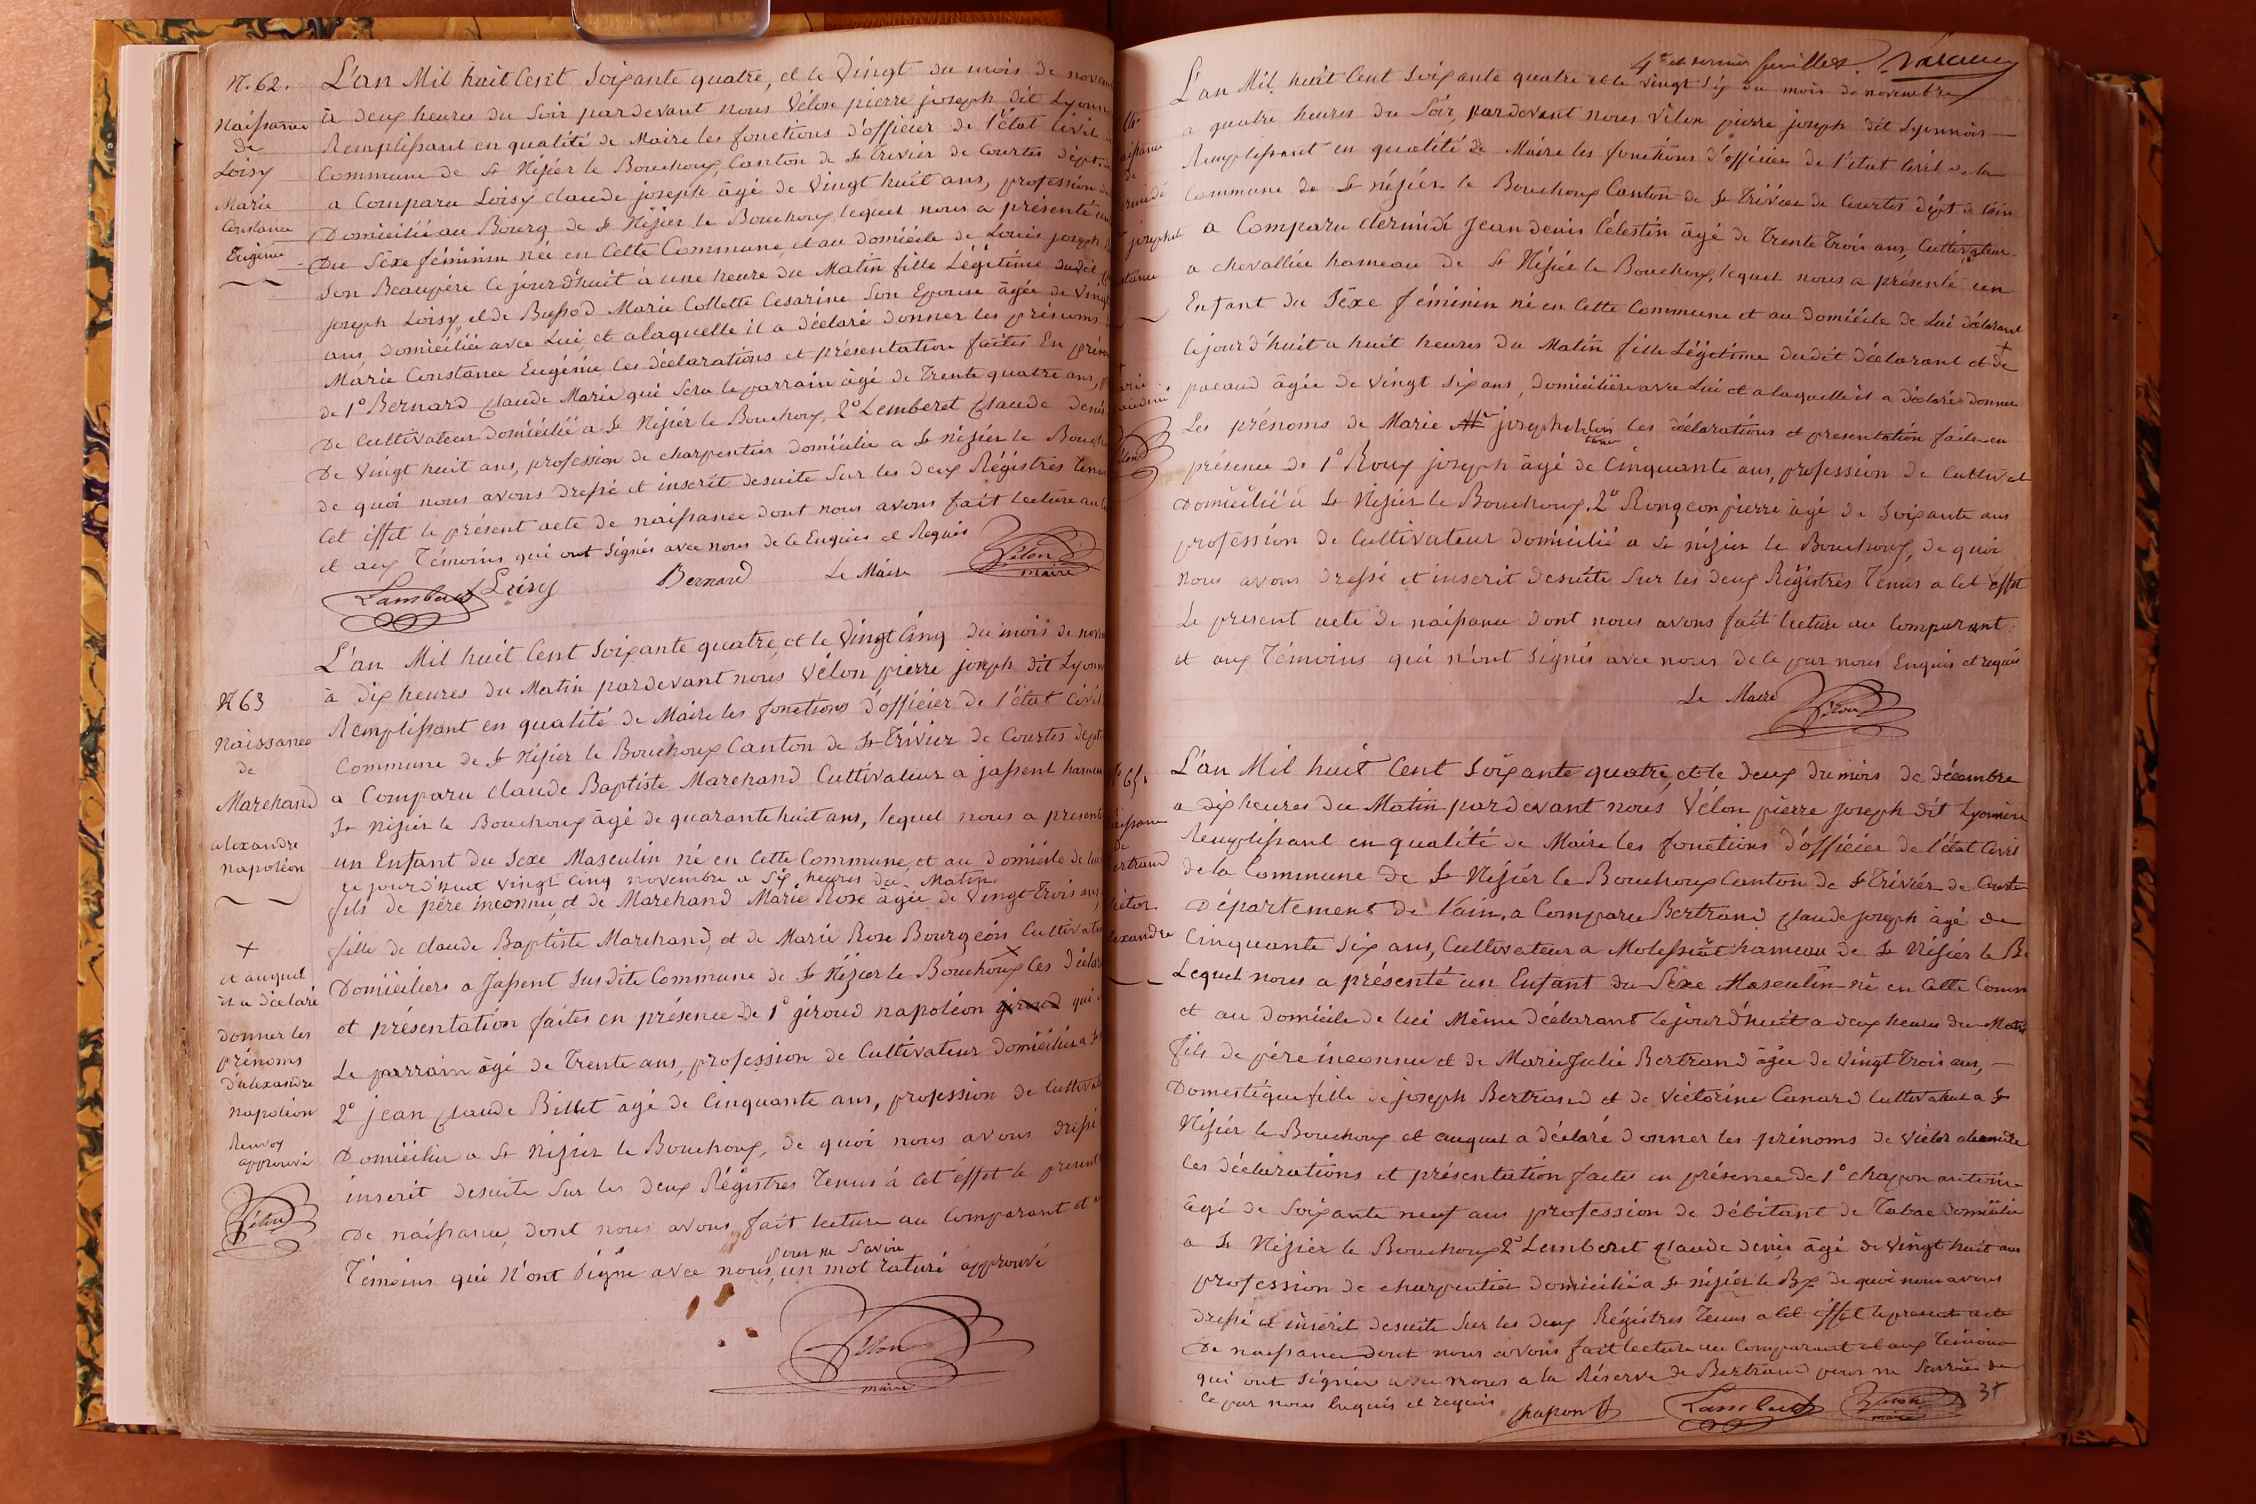 N. 62.
Naissance
de
Loisy
Marie
Constance
Eugénie
L'an Mil huit Cent Soixante quatre, et le Vingt du mois de novem
à deux heures du Soir pardevant nous Vélon pierre joseph dit Lyonn
Remplissant en qualité de Maire les fonctions d'officier de l'état Civil
Commune de St Nizier le Bouchoux, Canton de St Trivier de Courtes dépt
a Comparu Loisy claude joseph âgé de Vingt huit ans, profession
Domicilié au Bourg de St Nizier le Bouchoux lequel nous a présenté
Du Sexe féminin née en Cette Commune, et au domicile de Louis joseph
Son Beaupère le jour d'huit à une heure du Matin fille Légitime dudit
joseph Loisy, et de Bussod Marie Collette Cesarine Son Epouse âgée de Vingt
ans domiciliée avec Lui et alaquelle il a déclaré donner les prénoms
Marie Constance Eugénie les déclarations et présentation faites En prés
de 1° Bernard claude Marie qui Sera le parrain âgé de Trente quatre ans,
De Cultivateur domicilié a St Nizier le Bouchoux, 2° Lemberet claude denis
De Vingt huit ans, profession de charpentier domicilié a St nizier le Bouch
de quoi nous avons dressé et inscrit desuite Sur les deux Régistres tenu
Cet éffet le présent acte de naissance dont nous avons fait lecture au
et aux Témoins qui ont Signés avec nous de ce Enquis et Requis
Lambert Loisy Bernard Le Maire Vélon
maire
N 63
Naissance
de
Marchand
alexandre
napoléon
L'an Mil huit Cent Soixante quatre, et le Vingt Cinq du mois de nov
à dix heures du Matin pardevant nous Vélon pierre joseph dit Lyonn
Remplissant en qualité de Maire les fonctions d'officier de l'état Civil
Commune de St Nizier le Bouchoux Canton de St Trivier de Courtes dépt
a Comparu claude Baptiste Marchand Cultivateur a jassent hameau
St Nizier le Bouchoux âgé de quarante huit ans, lequel nous a présent
un Enfant du Sexe Masculin né en Cette Commune, et au domicile de lui
ce jour d'huit vingt Cinq novembre a Six heures du Matin
fils de père inconnu, et de Marchand Marie Rose âgée de Vingt Trois ans,
fille de claude Baptiste Marchand, et de Marie Rose Bourgeon Cultivate
Domiciliers a Jassent Susdite Commune de St Nizier le Bouchoux Les décla
et présentation faites en présence de 1° giroud napoléon giroud qui
Le parrain âgé de Trente ans, profession de Cultivateur domicilié a St
2° jean claude Billet âgé de Cinquante ans, profession de Cultivat
Domicilié a St Nizier le Bouchoux, de quoi nous avons dressé
inscrit desuite Sur les deux Régistres Tenus à Cet éffet le présent
De naissance, dont nous avons fait lecture au Comparant et
pour ne Savoir
Témoins qui N'ont Signé avec nous, un mot raturé approuvé
+
et auquel
il a déclaré
donner les
prénoms
d'alexandre
napoléon
Renvoy
approuvé
Vélon
Vélon
maire
4e et dernier feuillet
L'an Mil huit Cent Soixante quatre et le vingt Six du mois de novembre
a quatre heures du Soir, pardevant nous Vélon pierre joseph dit Lyonnois
Remplissant en qualité de Maire les fonctions d'officier de l'état Civil de la
Commune de St nizier le Bouchoux Canton de St Trivier de Courtes dépt de l'ain
a Comparu clermidi Jean denis Célestin âgé de Trente Trois ans, Cultivateur
a chevallier hameau de St Nizier le Bouchoux, lequel nous a présenté un
Enfant du Sexe féminin né en Cette Commune et au domicile de Lui déclarant
le jour d'huit a huit heures du Matin fille Légitime dudit déclarant et de
pacaud âgée de Vingt Six ans, domiciliée avec Lui et a laquelle il a déclaré donner
Les prénoms de Marie josephe les déclarations et présentation faites en
présence de 1° Roux joseph âgé de Cinquante ans, profession de Cultivat
Domicilié a St Nizier le Bouchoux. 2° Rongeon pierre âgé de Soixante ans
profession de Cultivateur domicilié a St nizier le Bouchoux, de quoi
Nous avons dressé et inscrit desuite Sur les deux Régistres Tenus a Cet effet
Le present acte de naissance dont nous avons fait lecture au Comparant
et aux Témoins qui n'ont Signés avec nous de ce par nous Enquis et requis
Le Maire Vélon
65.
L'an Mil huit Cent Soixante quatre, et le deux du mois de décembre
a dix heures du Matin pardevant nous Vélon pierre joseph dit Lyonnois
Remplissant en qualité de Maire les fonctions d'officier de l'état Civil
de la Commune de St Nizier le Bouchoux Canton de St Trivier de Courtes
Département de l'ain, a Comparu Bertrand claude joseph âgé de
Cinquante Six ans, Cultivateur a Molessiat hameau de St Nizier le B.
Lequel nous a présenté un Enfant du Sexe Masculin né en Cette Comm
et au domicile de lui Même déclarant le jour d'huit a deux heures du Matin
fils de père inconnu et de Marie Julie Bertrand âgée de Vingt Trois ans,
Domestique fille de joseph Bertrand et de Victorine Canard Cultivateur a St
Nizier le Bouchoux et auquel a déclaré donner les prénoms de Victor alexandre
les déclarations et présentation faites en présence de 1° chapon antoine
âgé de Soixante neuf ans profession de débitant de Tabac domicilié
a St Nizier le Bouchoux 2° Lemberet claude denis âgé de Vingt huit ans
profession de charpentier domicilié a St nizier le Bx de quoi nous avons
dressé et inscrit desuite Sur les deux Régistres Tenus a Cet effet le présent acte
De naissance dont nous avons fait lecture au Comparant et aux Témoins
qui ont Signés avec nous a la Réserve de Bertrand pour ne Savoir de
Ce par nous Enquis et requis chapon Lambert Vélon
maire